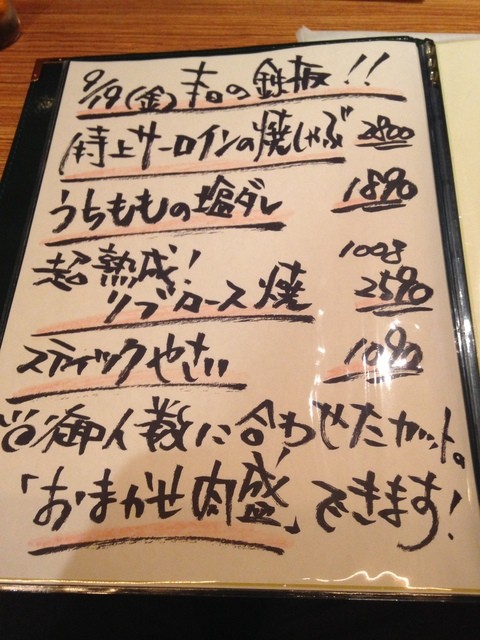 9/19(金) 本日の鉄板!!
特上サーロインの焼しゃぶ 2800
うちももの塩ダレ 1890
超熟成! 100g
リブロース焼 2590
スティックやさい 1090
御人数に合わせたカット。
「おまかせ肉盛」できます!